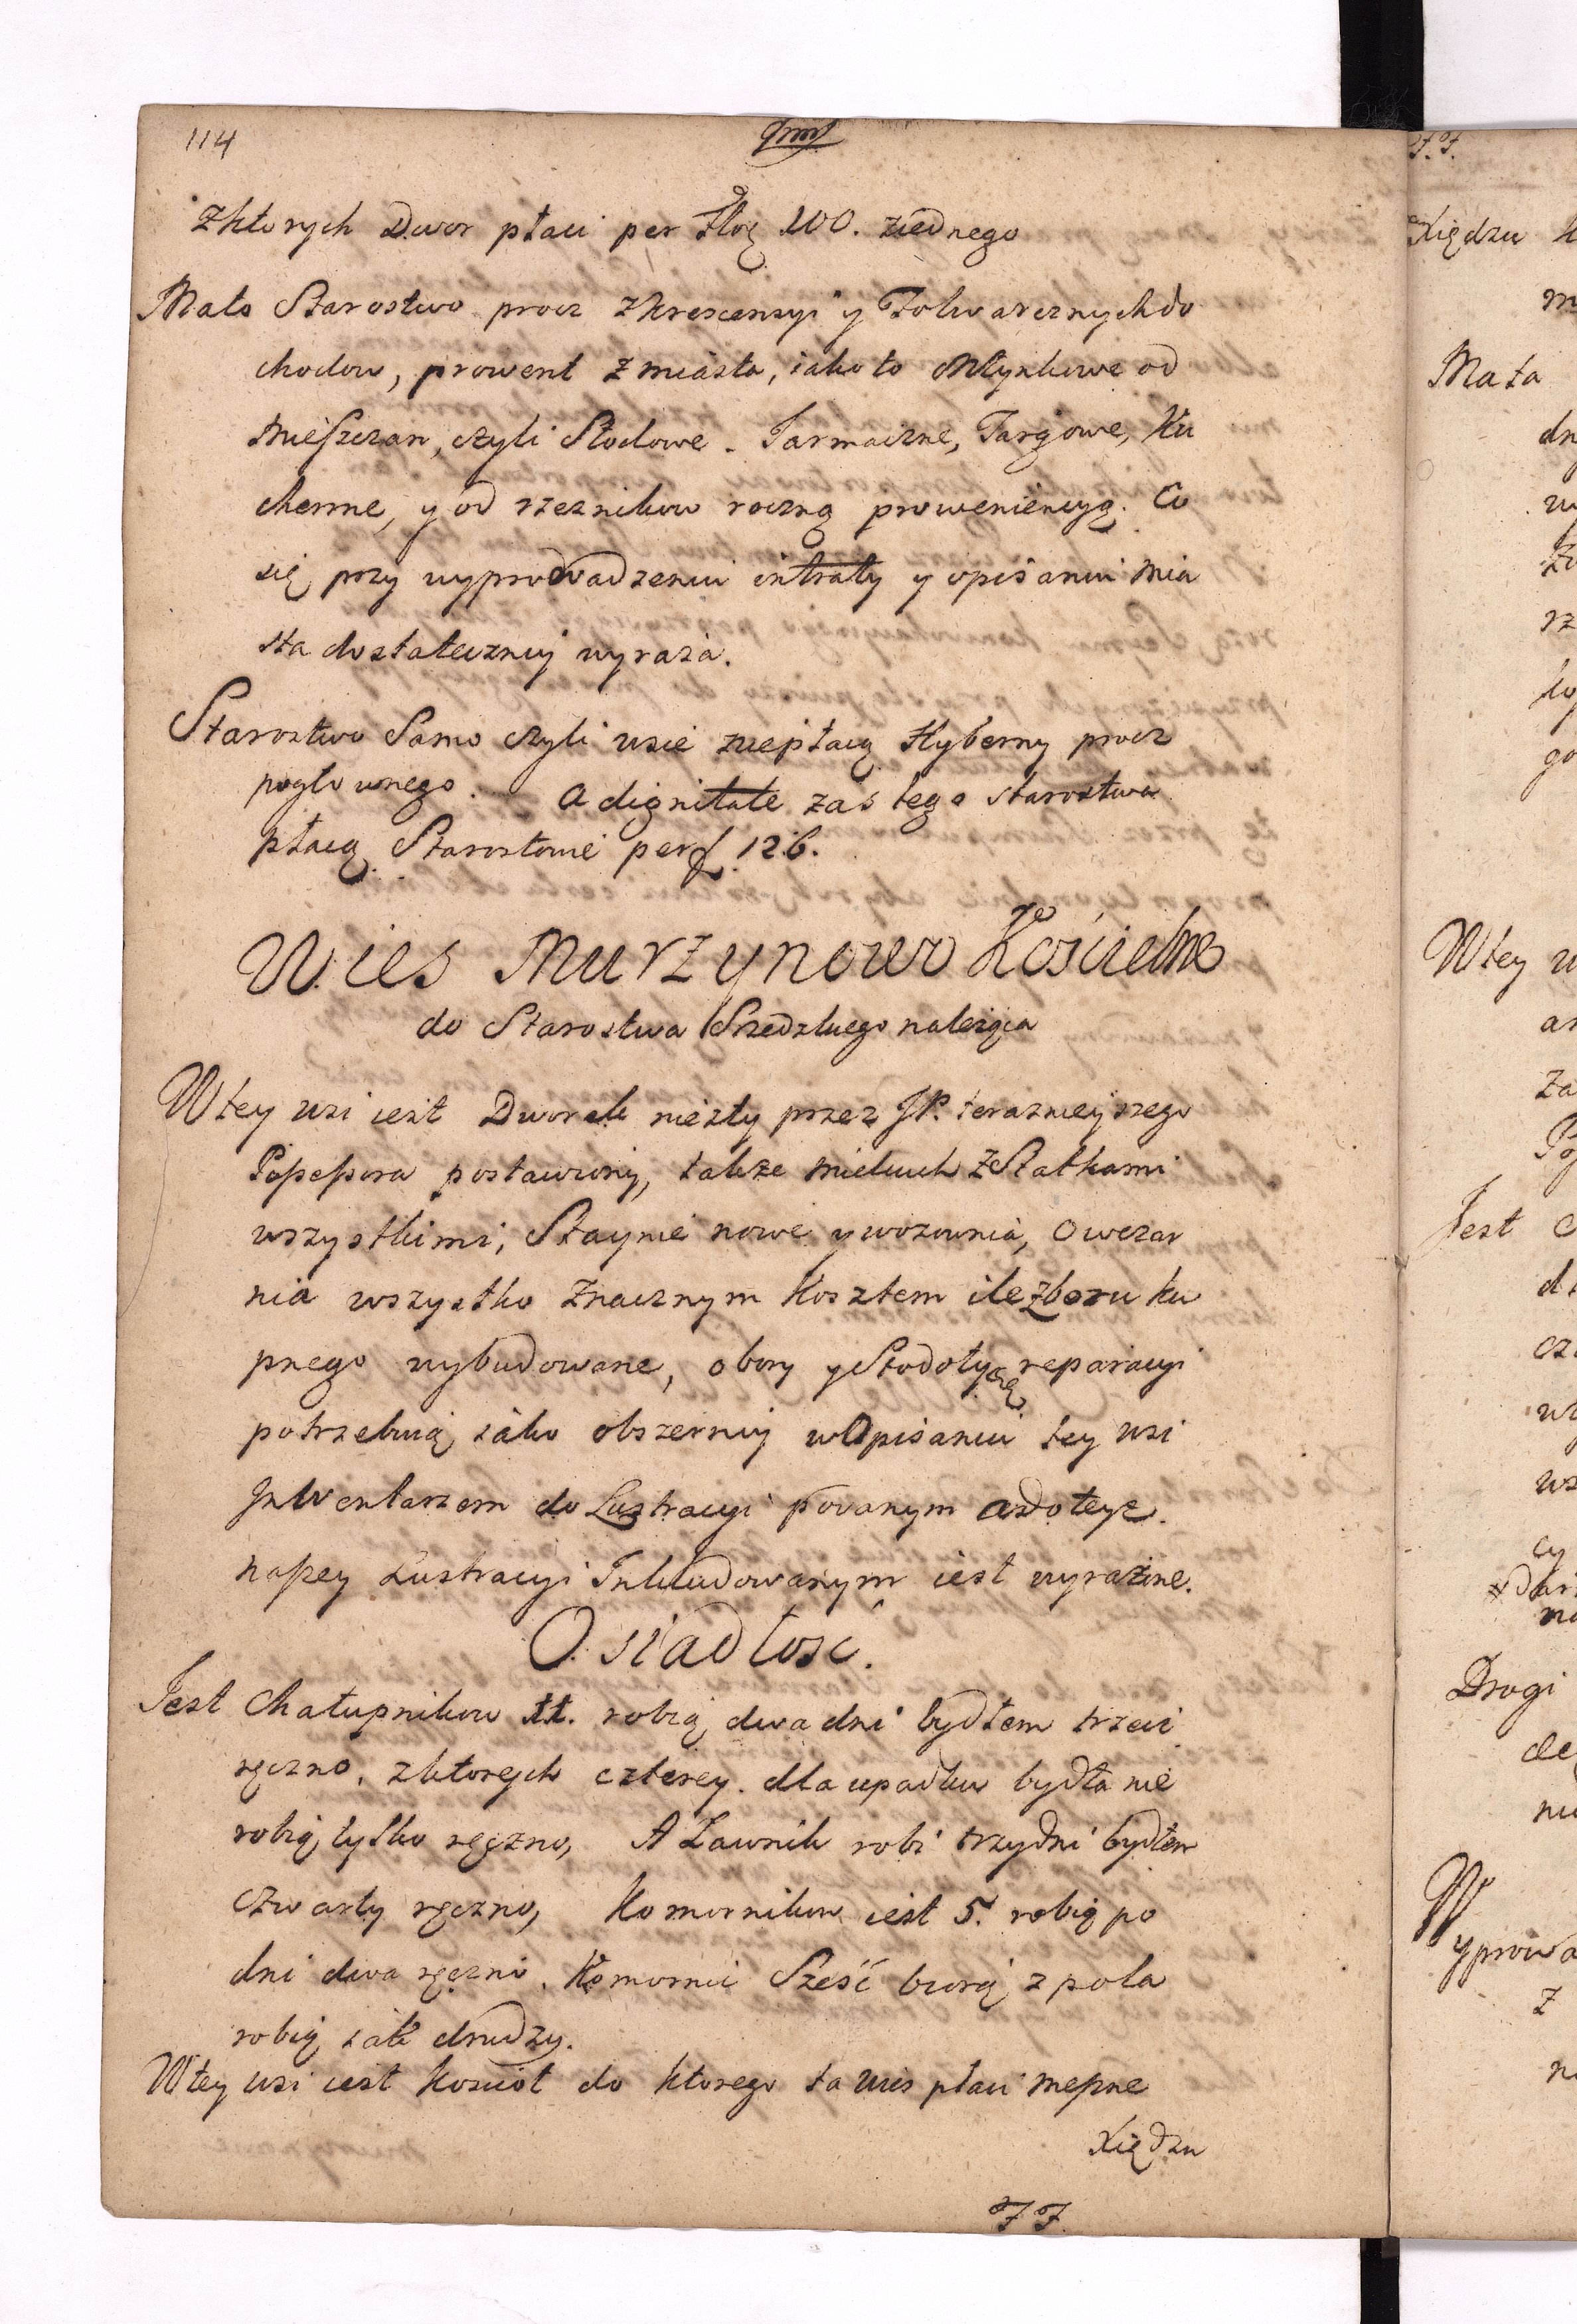 114
zktorych Dwor płaci per Złog 100. ziednego
Mało Starostwo procz zkrescencyi y Folwarcznych do
chodow, prowent z miasta, iako to Młynkowe od
Mieszczan, czyli Słodowe. Jarmaczne, Targowe, Ku
chenne, y od rzeznikow roczną prowenięcyą. Co
się przy wyprowadzeniu intraty y opisaniu mia
sta dostateczniey wyraża.
Starostwo Samo czyli wsie niepłacą Hyberny procz
pogłownego. A dignitate zaś tego starostwa
płacą Starostowie per f 126.
Wies Murzynowo Kościelne
do Starostwa Srzedzkiego należąca
Wtey wsi iest Dworek niezły przez JP. teraznieyszego
Possessora postawiony, także mielcuch ze Statkami
wszystkimi, Staynie nowe y wozownia, Owczar
nia wszystko znacznym Kosztem ile zboru ku
pnego wybudowane, obory y Stodoły się reparacyi
potrzebuią iako obszerniey w Opisaniu tey wsi
Inwentarzem do Lustracyi podanym a do teyż
naszey Lustracyi Inkludowanym iest wyrażone.
Osiadłość.
Jest Chałupnikow 11. robią dwa dni bydłem trzeci
ręczno, zktorych czterey dla upadku bydła nie
robią tylko ręczno, A Ławnik robi trzy dni bydłem
czwarty ręczno, Komornikow iest 5. robią po
dni dwa ręczno. Komornic Sześć biorą z pola
robią iak drudzy.
Wtey wsi iest Kosciół do ktorego ta wies płaci meszne
Xiędzu
FF.
F.F.
Xiędzu
Mata
Wtey
Jest
Drogi
W
yprowa